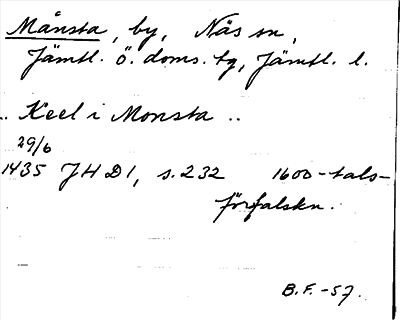 Månsta, by, Näs sn,
Jämtl. ö. doms. tg, Jämtl. l.
.. Keel i Monsta ..
29/6
1435 JHD 1, s. 232 1600-tals-
förfalskn.
B.F. -57.